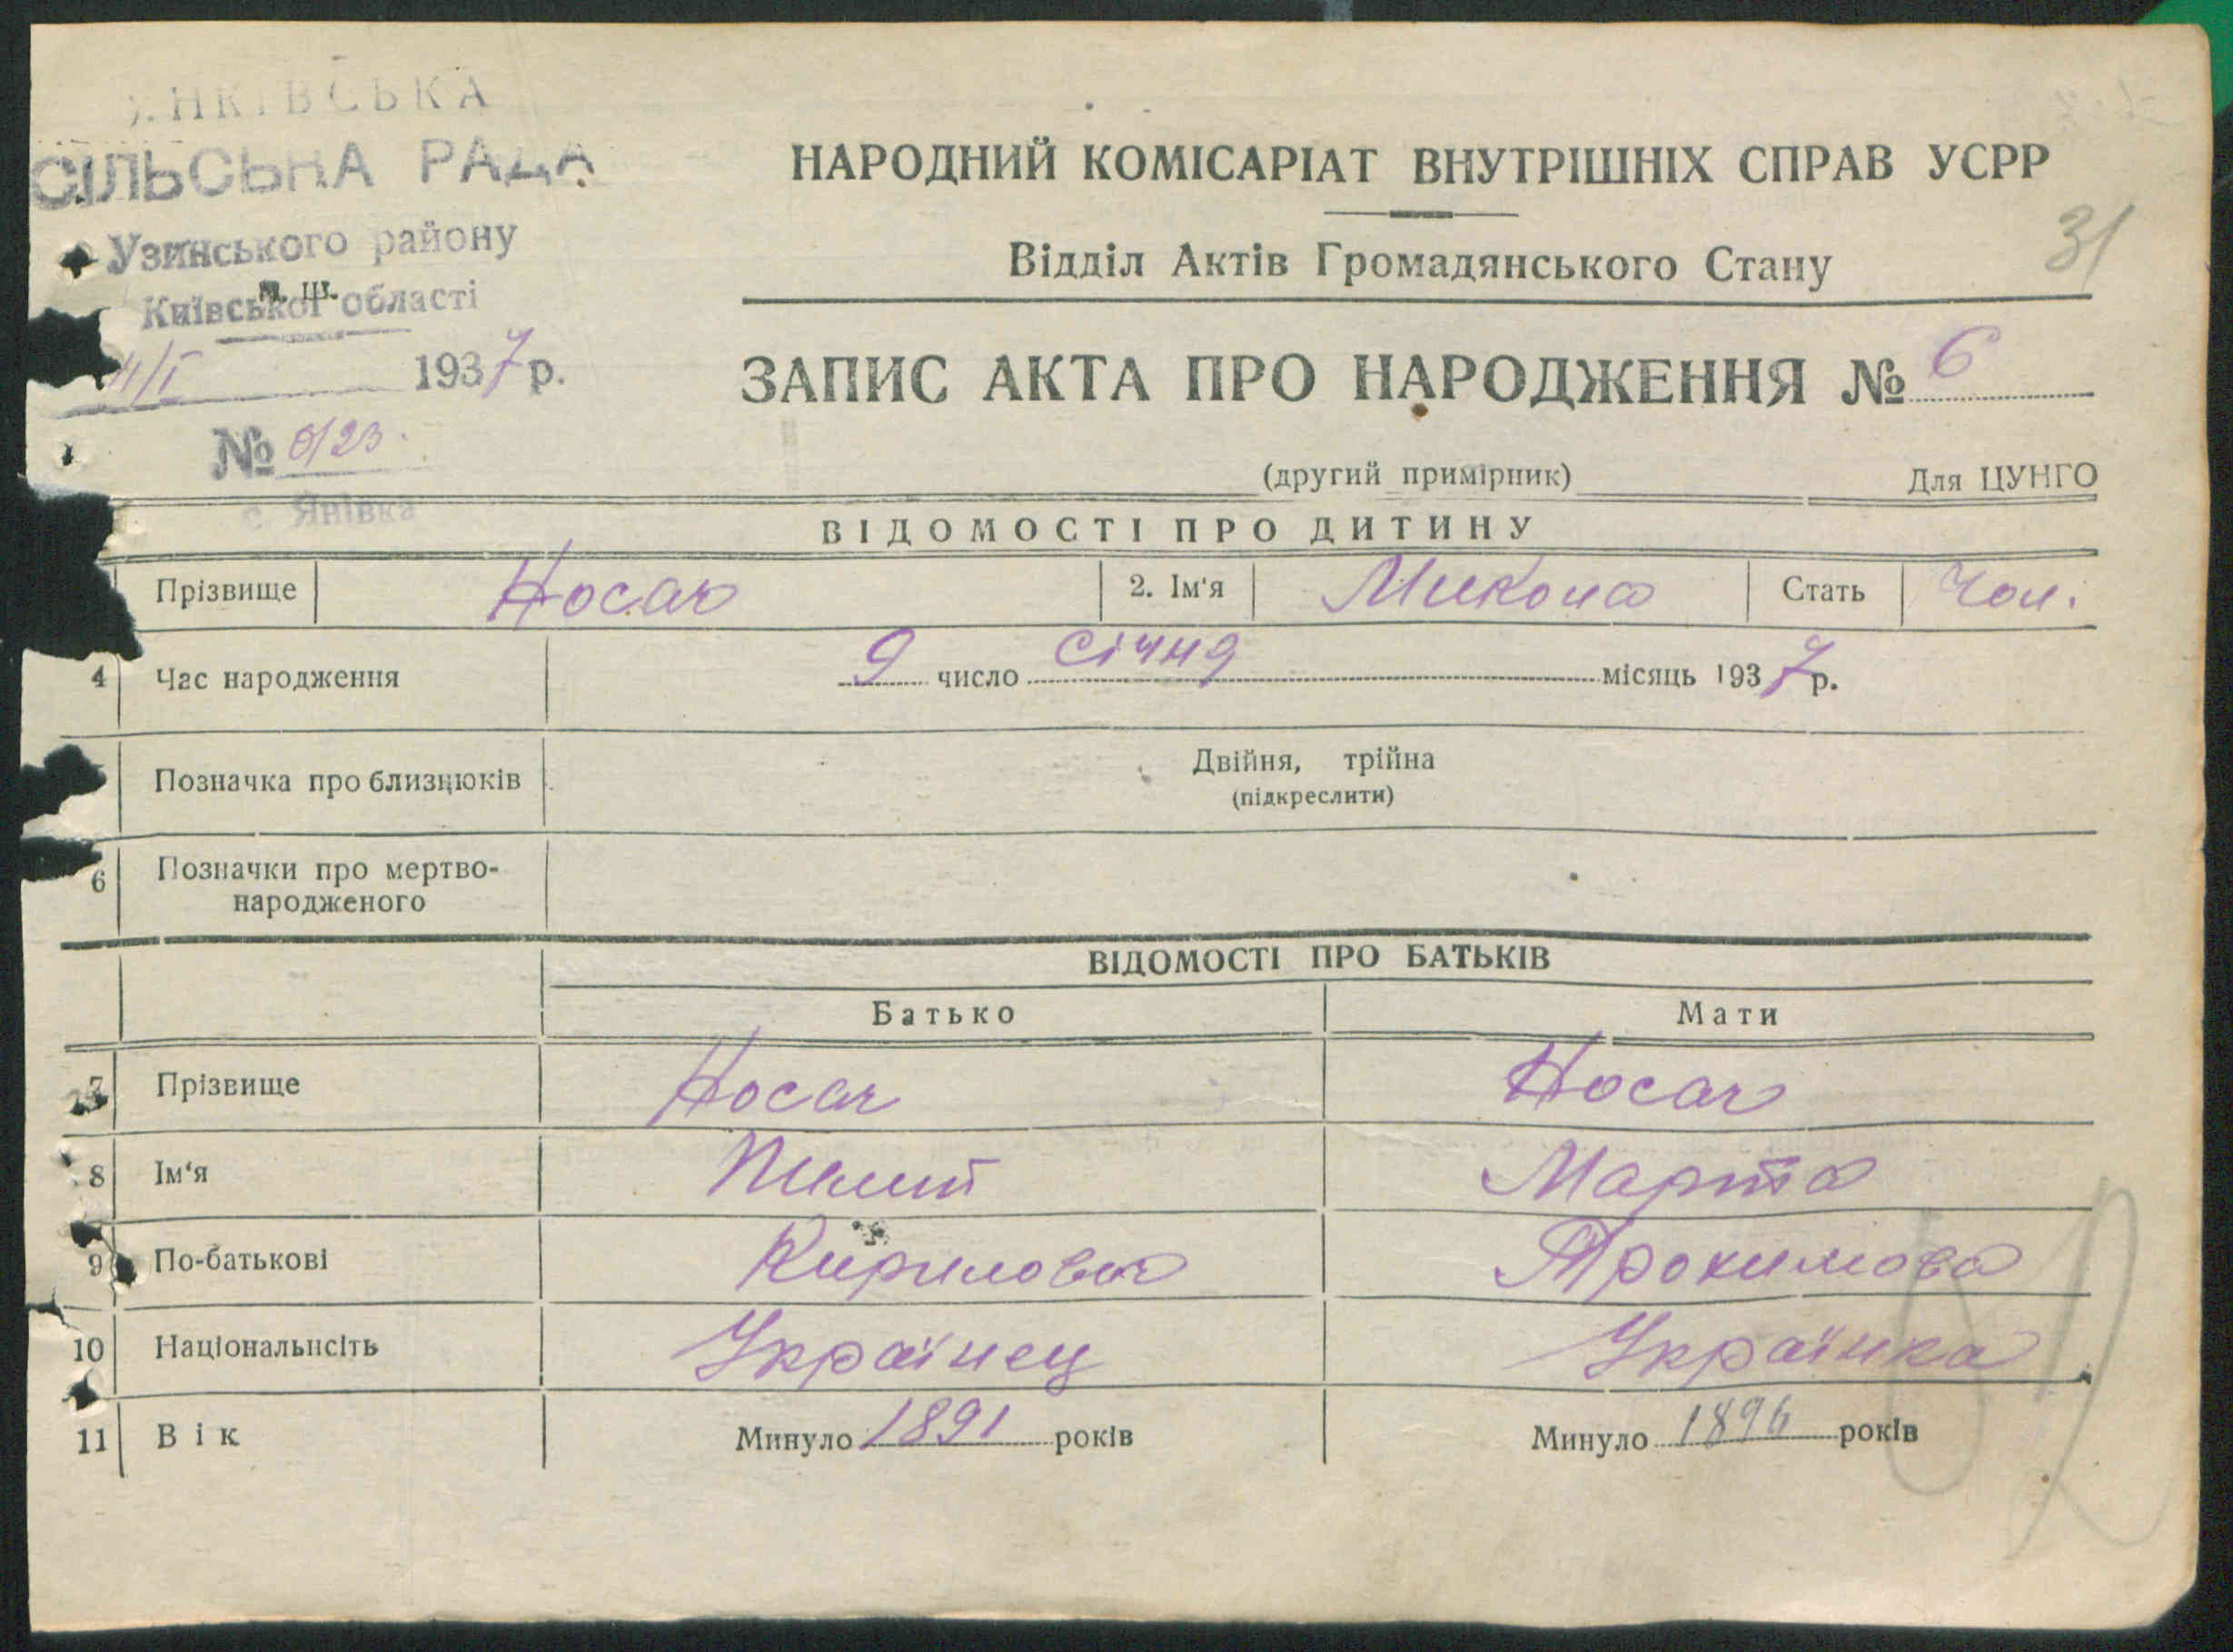 СІЛЬСЬКА РАДА
Узинського району
Київської області
11/I 1937 р.
№ 0/23.
с. Янівка
НАРОДНИЙ КОМІСАРІАТ ВНУТРІШНІХ СПРАВ УСРР
Відділ Актів Громадянського Стану
31
ЗАПИС АКТА ПРО НАРОДЖЕННЯ № 6
(другий примірник) Для ЦУНГО
ВІДОМОСТІ ПРО ДИТИНУ
Прізвище Носач 2. Ім'я Микола Стать Чол.
4 Час народження 9 число Січня місяць 1937 р.
Позначка про близнюків Двійня, трійна
(підкреслити)
6 Позначки про мертво-
народженого
ВІДОМОСТІ ПРО БАТЬКІВ
Батько Мати
7 Прізвище Носач Носач
8 Ім'я Пилип Марта
9 По-батькові Кирилович Трокимова
10 Національнсіть Українец Українка
11 Вік Минуло 1891 років Минуло 1896 років